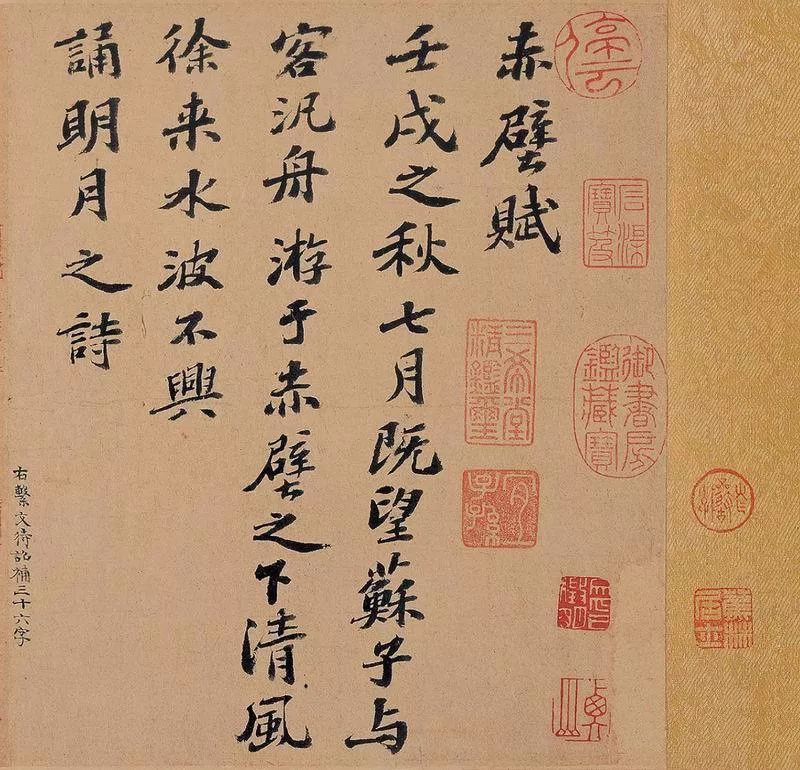 停雲
石渠寶笈
御書房鑑藏寶
三希堂精鑑璽
宜子孫
赤壁賦
壬戌之秋七月既望蘇子与
客汎舟游于赤壁之下清風
徐来水波不興
誦明月之詩
右繫文待詔補三十六字